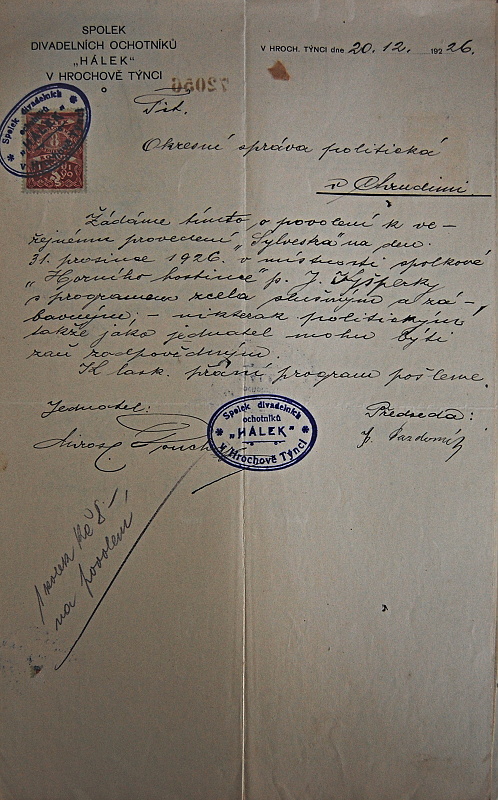 SPOLEK
DIVADELNÍCH OCHOTNÍKŮ
„HÁLEK“
V HROCHOVĚ TÝNCI
V HROCH. TÝNCI dne 20. 12. 1926.
72056
Spolek divadelních
ochotníků
„HÁLEK“
Tit.
Okresní správa politická
v Chrudimi.
Žádáme tímto o povolení k ve-
řejnému provedení „Sylvestra“ na den
31. prosince 1926. v místnosti spolkové
„Horního hostince“ p. J. Vyšperky
s programem zcela slušným a zá-
bavným, – nikterak politickým
takže jako jednatel mohu býti
zaň zodpovědným.
K lask. přání program pošleme.
Jednatel:
Předseda:
Spolek divadelních
ochotníků
„HÁLEK“
v Hrochově Týnci
Mirosl.
J.
1 kolek Kč 8 –
na povolení